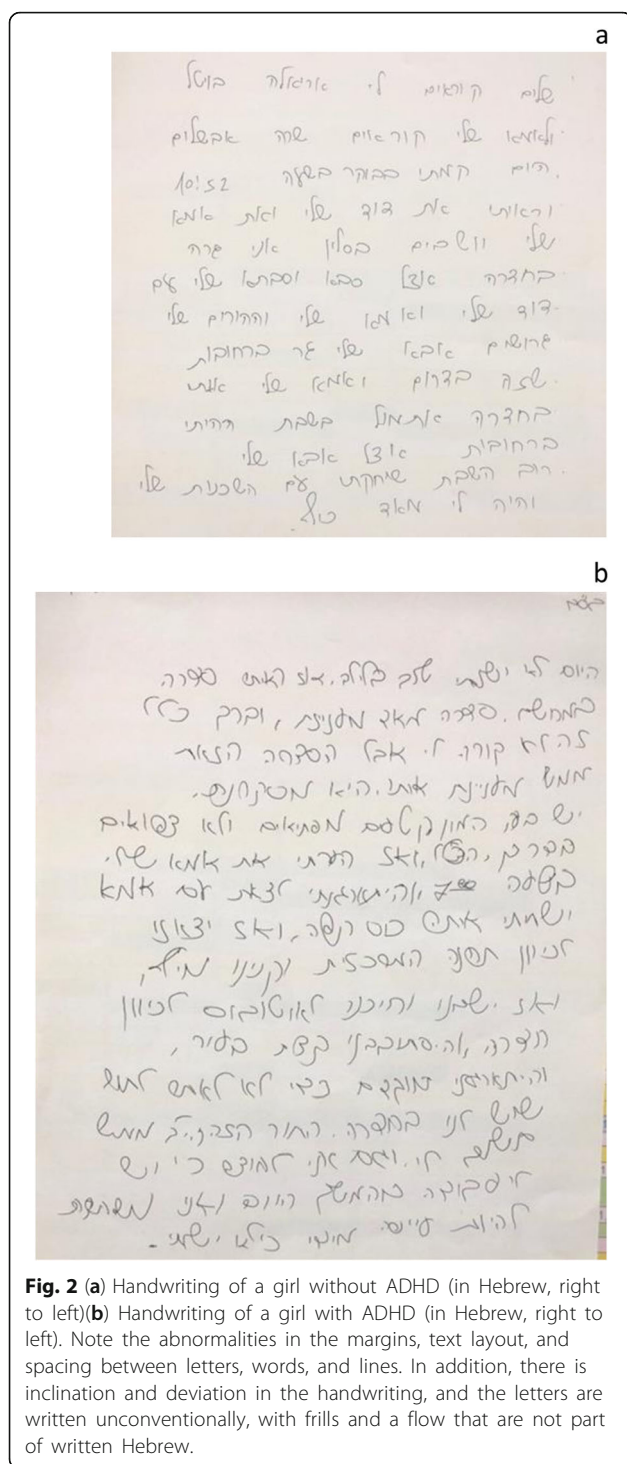 a
שלום קוראים לי אריאלה
ולאמא שלי קוראים שרה אבשלום
היום קמתי בבוקר בשעה 10:52
וראיתי את דוד שלי ואת אמא
שלי יושבים בסלון אני גרה
בחדרה אצל סבא וסבתא שלי עם
דוד שלי ואמא שלי וההורים שלי
גרושים אבא שלי גר ברחובות
שזה בדרום ואמא שלי איתי
בחדרה אתמול בשבת הייתי
ברחובות אצל אבא שלי
רוב השבת שיחקתי עם השכנות שלי
והיה לי מאד כיף.
b
היום לא ישנתי טוב בלילה. אז ראיתי סדרה
סדרה מאד מעניינת, ובדרך כלל
זה לא קורה לי אבל הסדרה הזאת
ממש מעניינת אותי. היא
יש בה המון קטעים מפתיעים ולא צפואים
ואז הערתי את אמא שלי
בשעה 7:00 והיתארגנתי לצאת עם אמא
כוס קפה, ואז יצאנו
לכיוון תחנה המרכזית וקנינו
ואז ישבנו וחיכנו לאוטובוס לכיוון
חדרה, והסתובבנו קצת בעיר,
והיתארגנו מוקדם כדי לא לאחר
שיש לנו בחדרה. ממש
לי. כי יש
לי עבודה בהמשך היום ואני
להיות כי לא ישנתי.
Fig. 2 (a) Handwriting of a girl without ADHD (in Hebrew, right
to left)(b) Handwriting of a girl with ADHD (in Hebrew, right to
left). Note the abnormalities in the margins, text layout, and
spacing between letters, words, and lines. In addition, there is
inclination and deviation in the handwriting, and the letters are
written unconventionally, with frills and a flow that are not part
of written Hebrew.